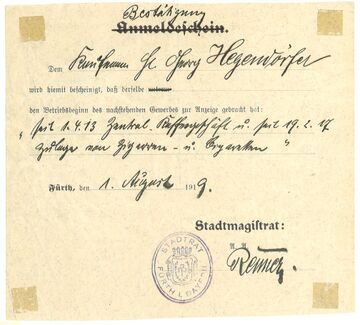 Bestätigung
Anmeldeschein.
Dem Kaufmann Hr Georg Hegendörfer
wird hiemit bescheinigt, daß derselbe
den Betriebsbeginn des nachstehenden Gewerbes zur Anzeige gebracht hat:
" seit 1.4.13 Zentral-Kaffeegeschäft u. seit 19.2.17
Zulage von Zigarren- u. Zigaretten "
Fürth, den 1. August 1919.
Stadtmagistrat:
STADTRAT
FÜRTH I. BAYERN